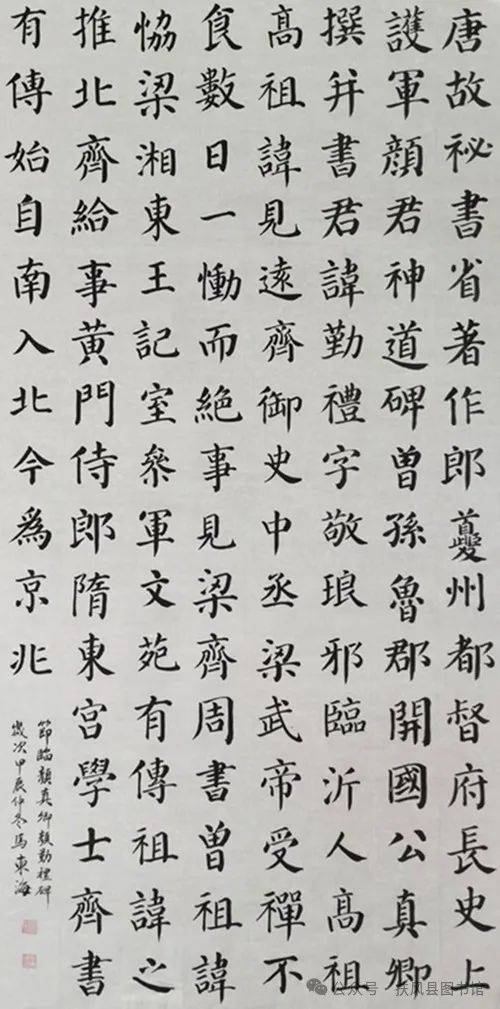 唐故祕書省著作郎夔州都督府長史上
護軍顏君神道碑曾孫魯郡開國公真卿
撰并書君諱勤禮字敬琅邪臨沂人高祖
高祖諱見遠齊御史中丞梁武帝受禪不
食數日一慟而絕事見梁齊周書曾祖諱
恊梁湘東王記室叅軍文苑有傳祖諱之
推北齊給事黃門侍郎隋東宮學士齊書
有傳始自南入北今為京兆
節臨顏真卿顏勤禮碑
歲次甲辰仲冬馬東海
公众号 扶风县图书馆